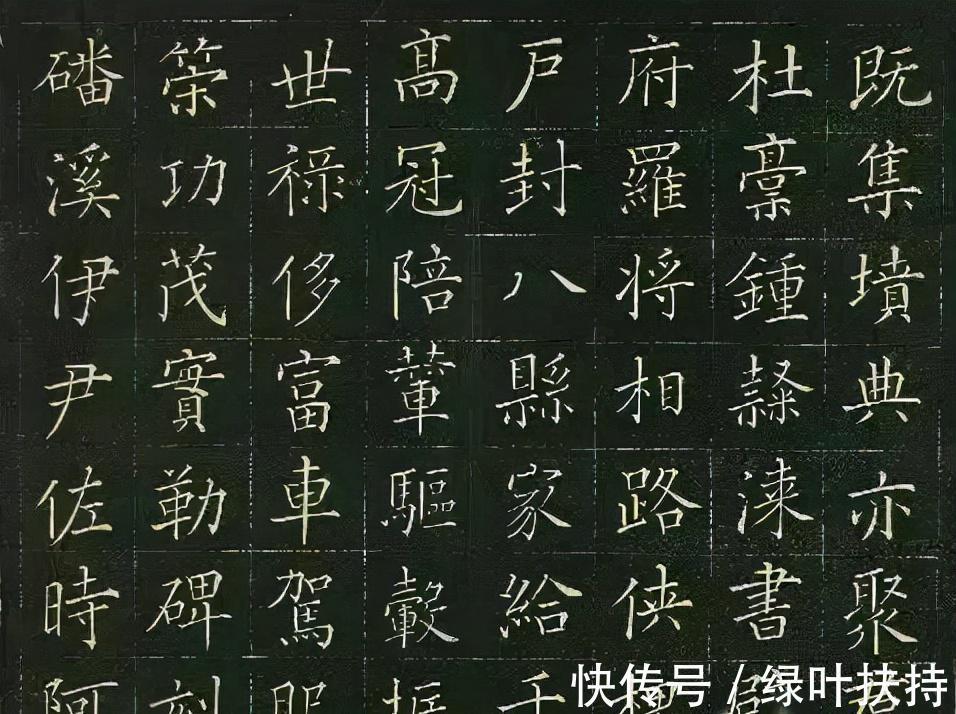 既集墳典亦聚
杜稾鍾隸漆書
府羅将相路俠
戶封八縣家給千
髙冠陪輦驅轂振
世禄侈富車駕肥
策功茂實勒碑刻
磻溪伊尹佐時阿
快传号 / 绿叶扶持